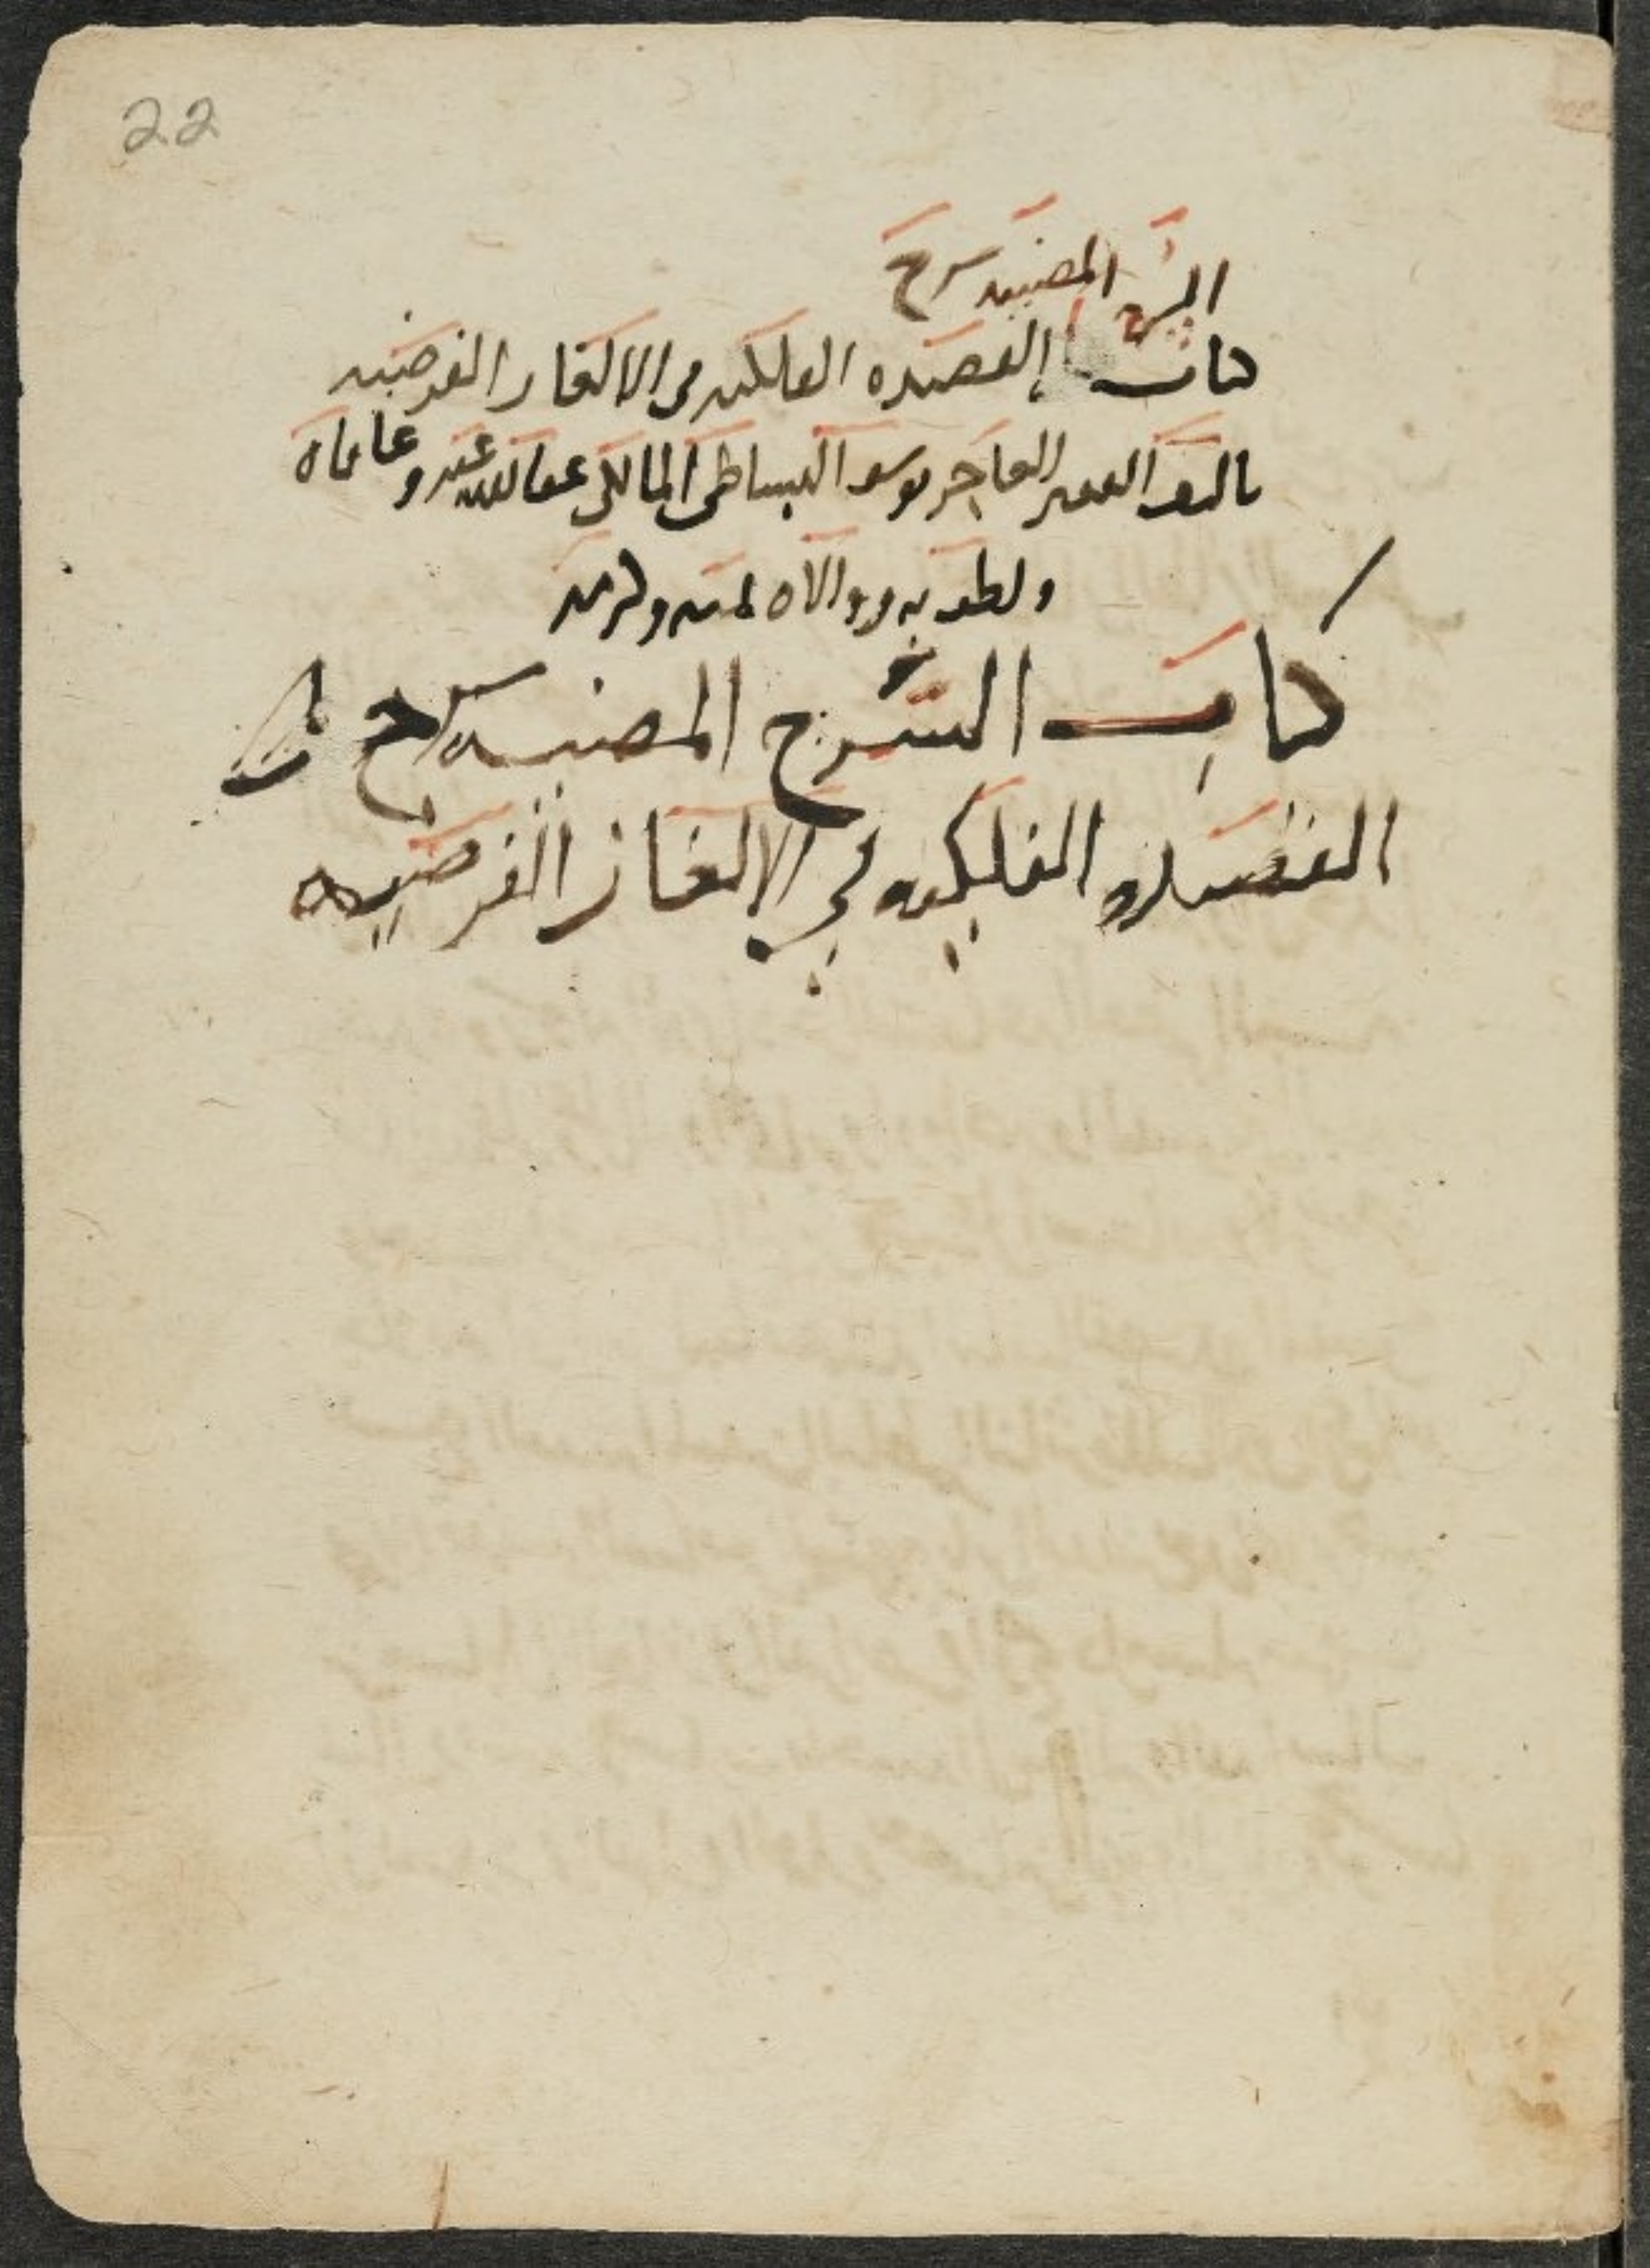 22
السرج المضيه شرح
كتاب القصيده الفلكيه في الالغاز الفرضيه
تاليف الفقير العاجز يوسف البساطي المالكي عفا الله عنه وعافاه
ولطف به ووالاه بمنه وكرمه
كتاب السرج المضيه شرح
القصيده الفلكيه في الالغاز الفرضيه